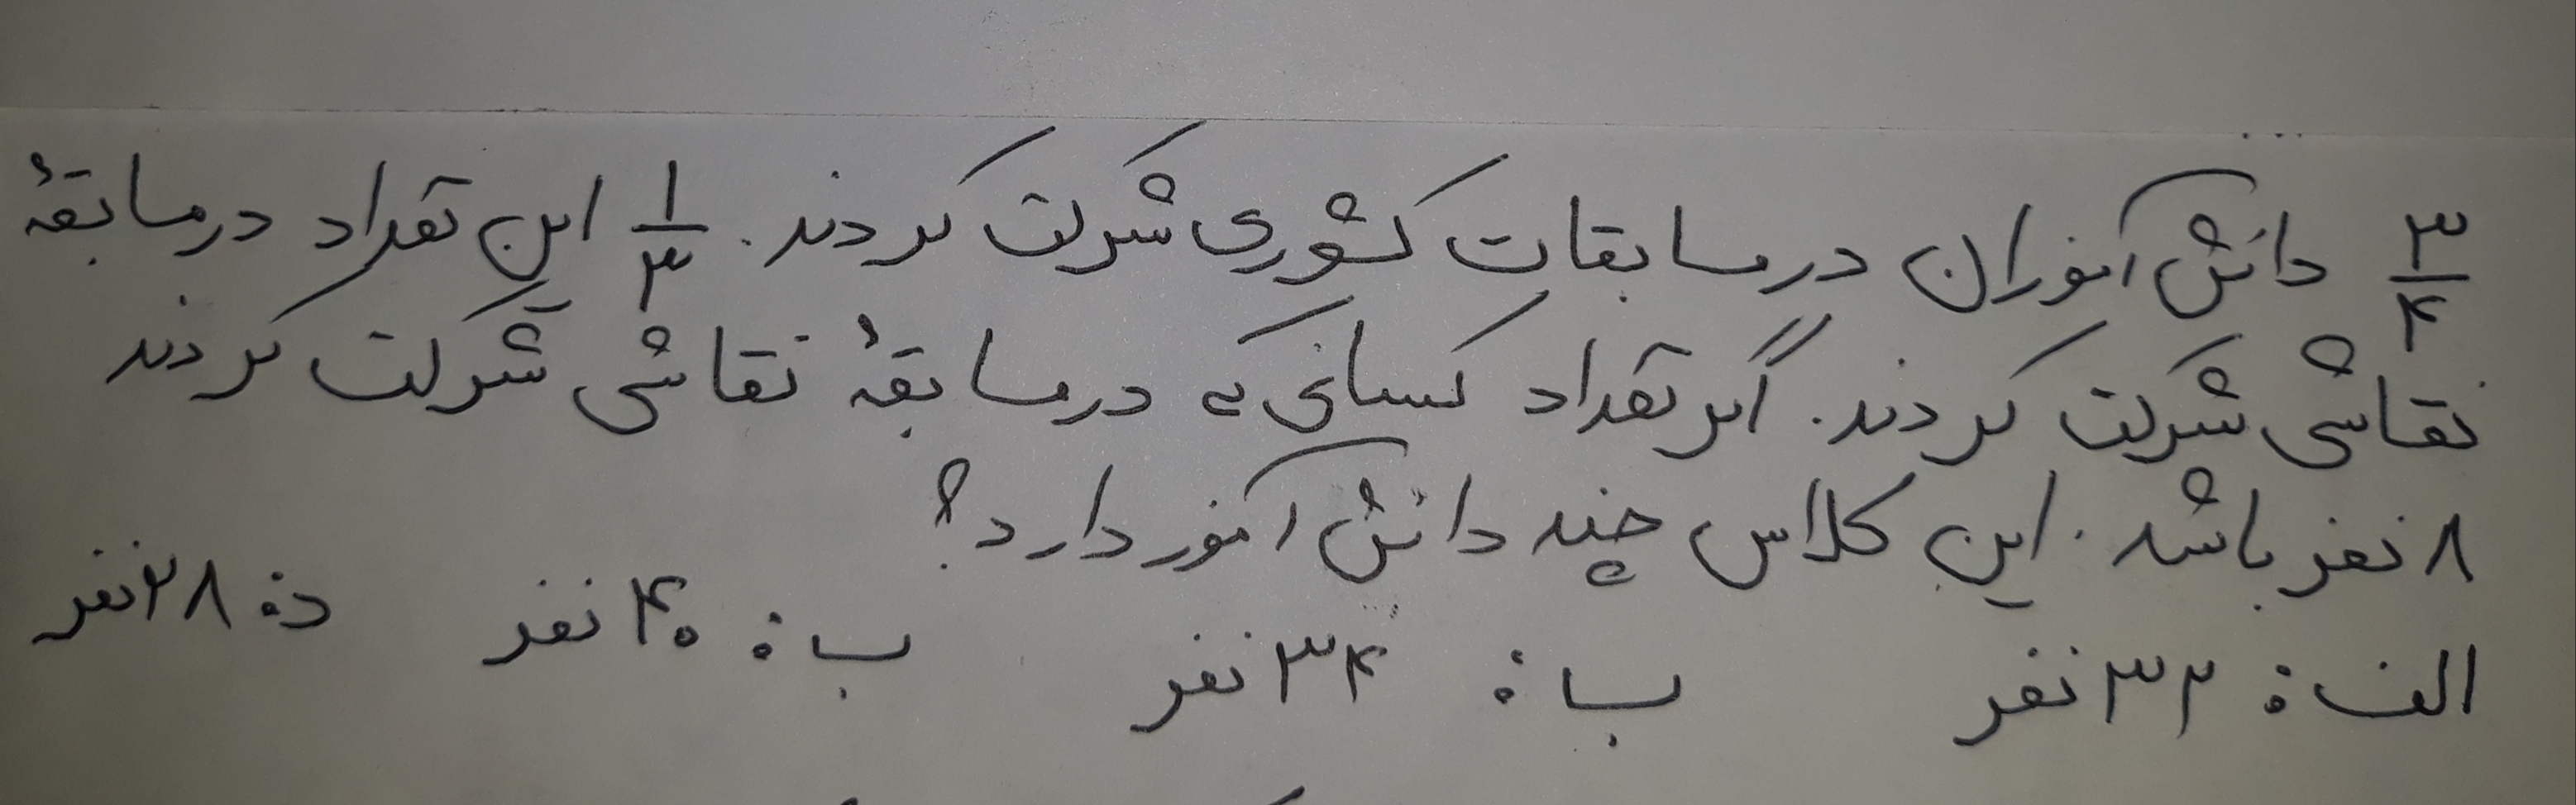 ۳/۴ دانش آموزان در مسابقات کشوری شرکت کردند. ۱/۳ این تعداد در مسابقهٔ
نقاشی شرکت کردند. اگر تعداد کسانی که در مسابقهٔ نقاشی شرکت کردند
۸ نفر باشد. این کلاس چند دانش آموز دارد؟
الف: ۳۲ نفر ب: ۳۴ نفر ب: ۴۰ نفر د: ۲۸ نفر